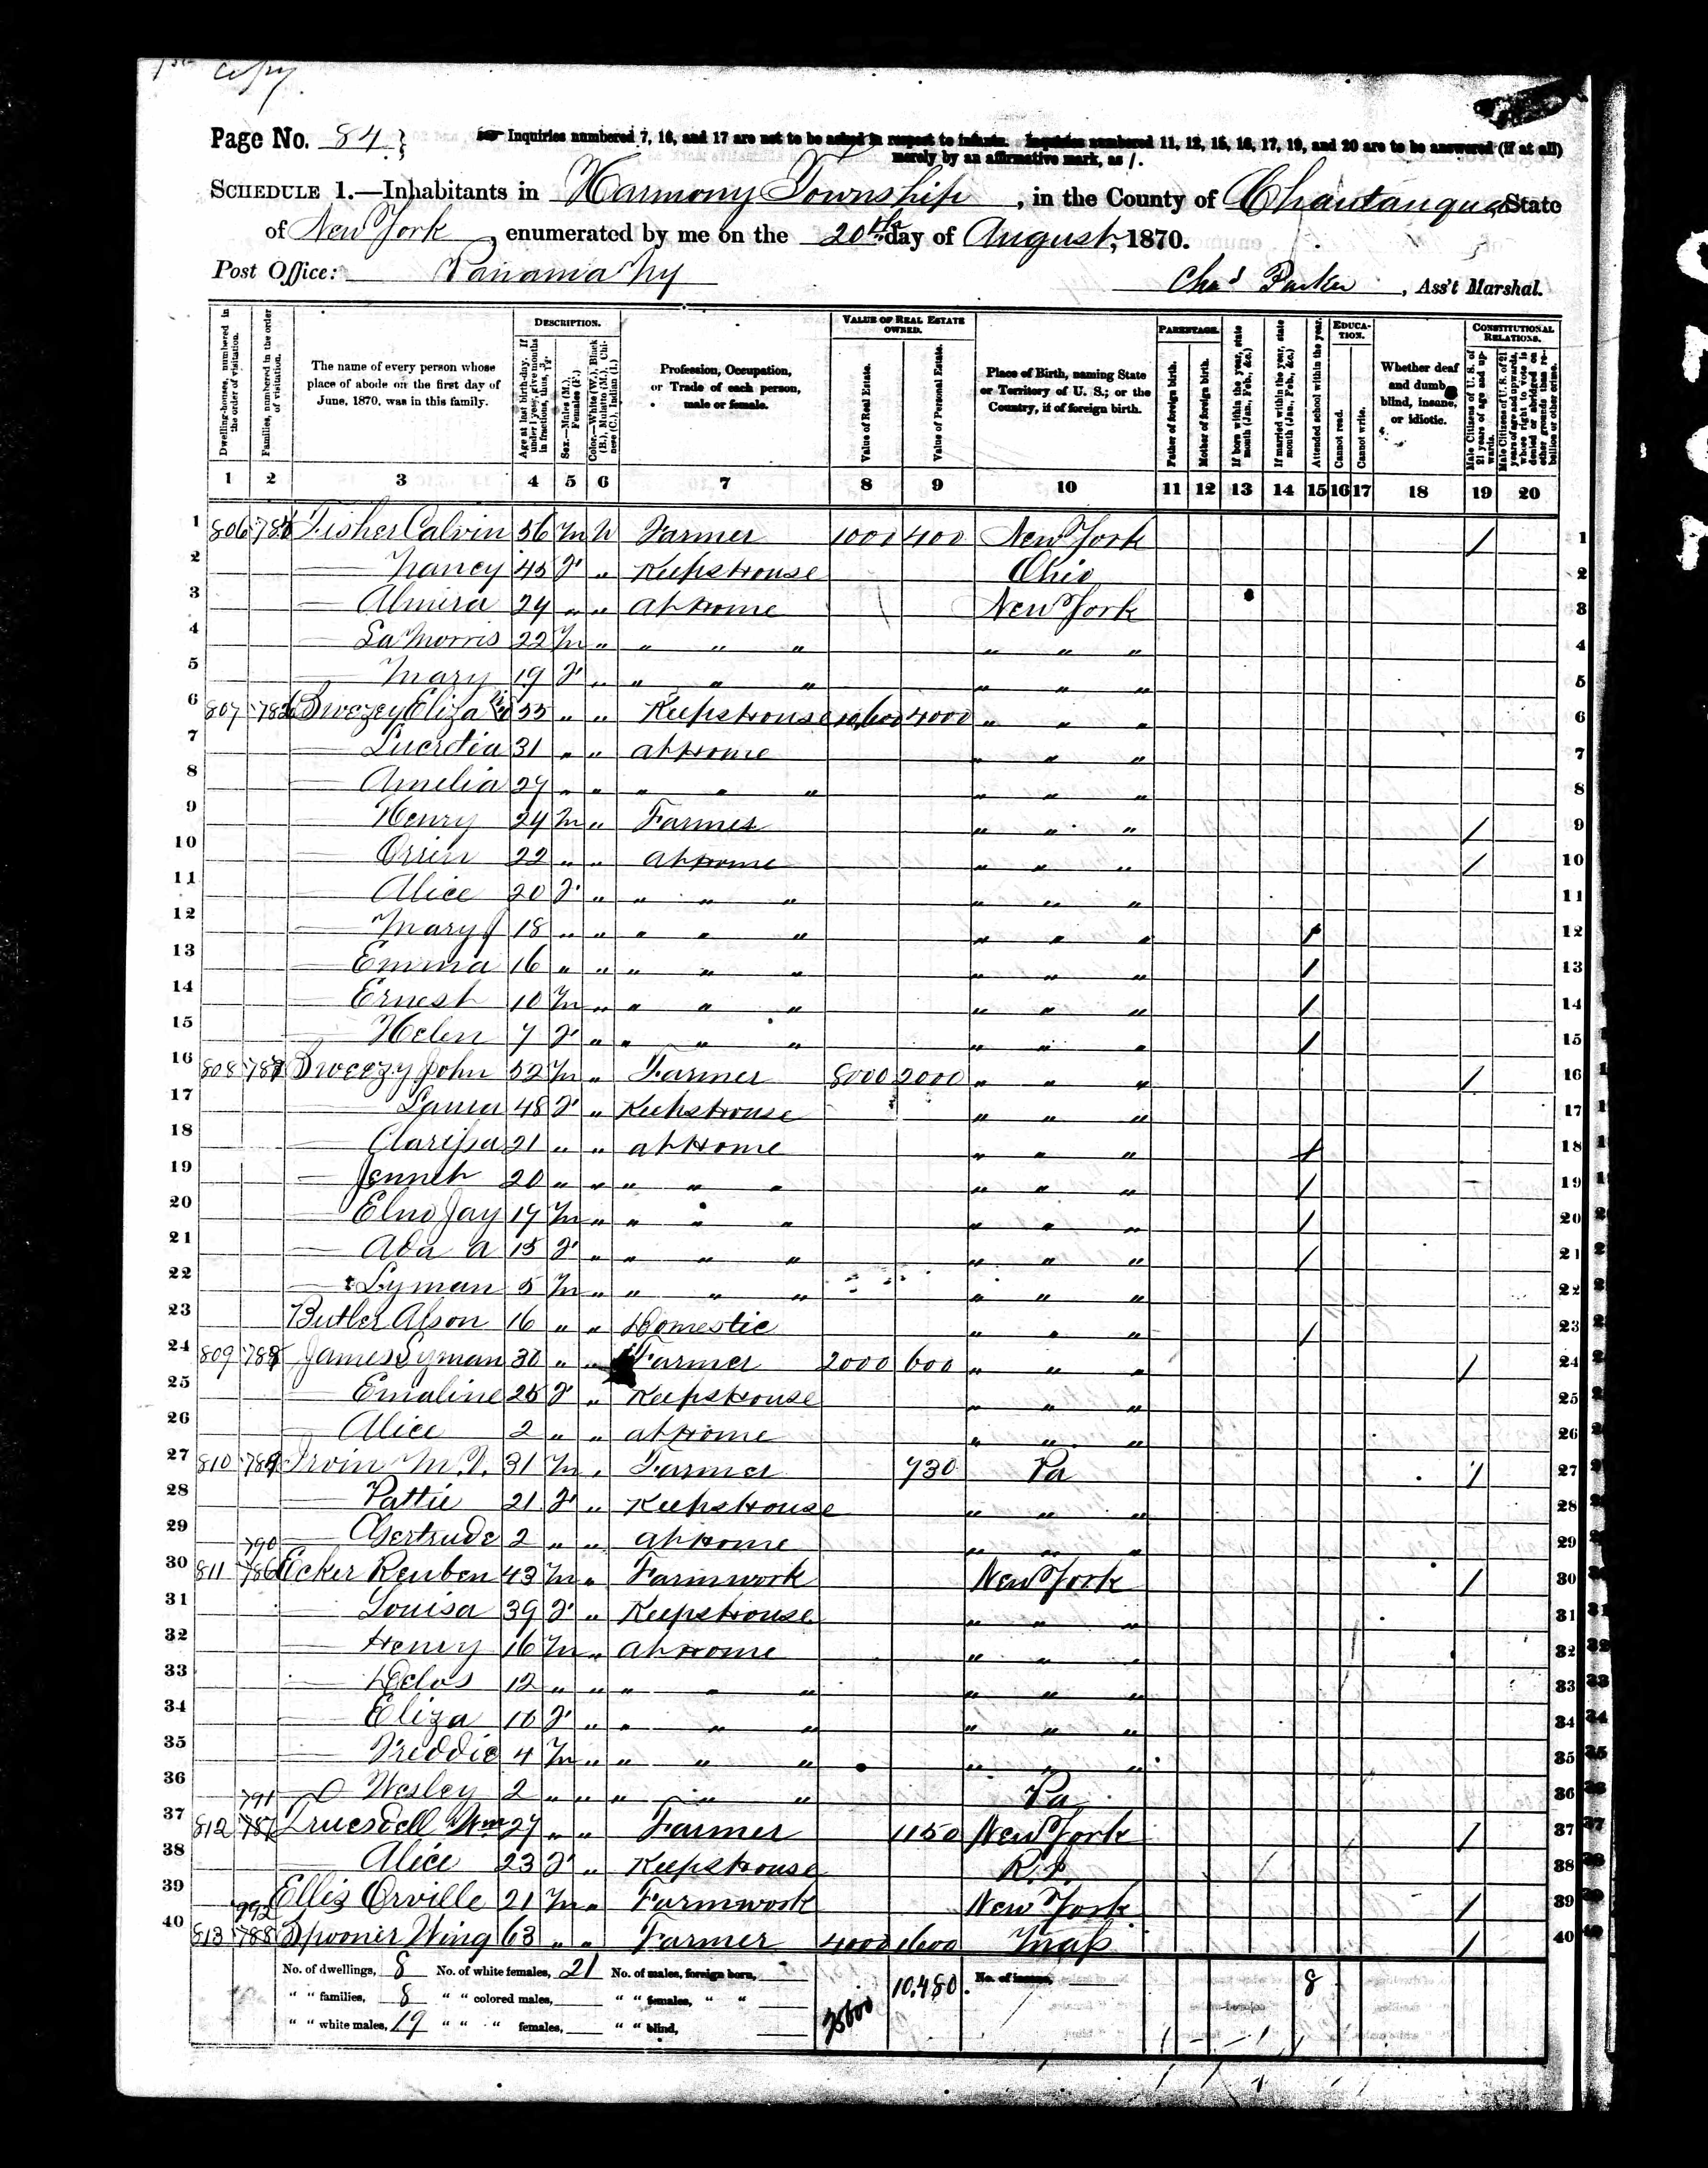 1st copy
Page No. 84 } Inquiries numbered 7, 16, and 17 are not to be asked in respect to infants. Inquiries numbered 11, 12, 15, 16, 17, 19, and 20 are to be answered (if at all)
merely by an affirmative mark, as /.
SCHEDULE 1.—Inhabitants in Harmony Township, in the County of Chautauqua, State
of New York, enumerated by me on the 20th day of August, 1870.
Post Office: Panama Ny
Chas Parker, Ass't Marshal.
Dwelling-houses, numbered in the order of visitation.
Families, numbered in the order of visitation.
The name of every person whose place of abode on the first day of June, 1870, was in this family.
DESCRIPTION.
Age at last birth-day. If under 1 year, give months in fractions, thus, 3/12.
Sex.—Males (M.), Females (F.)
Color.—White (W.), Black (B.), Mulatto (M.), Chinese (C.), Indian (I.)
Profession, Occupation, or Trade of each person, male or female.
VALUE OF REAL ESTATE OWNED.
Value of Real Estate.
Value of Personal Estate.
Place of Birth, naming State or Territory of U. S.; or the Country, if of foreign birth.
PARENTAGE.
Father of foreign birth.
Mother of foreign birth.
If born within the year, state month (Jan., Feb., &c.)
If married within the year, state month (Jan., Feb., &c.)
Attended school within the year.
EDUCATION.
Cannot read.
Cannot write.
Whether deaf and dumb, blind, insane, or idiotic.
CONSTITUTIONAL RELATIONS.
Male Citizens of U. S. of 21 years of age and upwards.
Male Citizens of U. S. of 21 years of age and upwards, whose right to vote is denied or abridged on other grounds than rebellion or other crime.
1 2 3 4 5 6 7 8 9 10 11 12 13 14 15 16 17 18 19 20
1 806 Fisher Calvin 56 M W Farmer 1000 400 New York / 1
2 — Nancy 45 F " Keeps House Ohio 2
3 — Almira 24 " " at Home New York 3
4 — La Morris 22 M " " " " " " " 4
5 — Mary 19 F " " " " " " " 5
6 807 Swezey Eliza 55 " " Keeps House 10,600 4000 " " " 6
7 — Lucretia 31 " " at Home " " " 7
8 — Amelia 27 " " " " " " " " 8
9 — Henry 24 M " Farmer " " " / 9
10 — Orrin 22 " " at Home " " " / 10
11 — Alice 20 F " " " " " " " 11
12 — Mary J 18 " " " " " " " " / 12
13 — Emma 16 " " " " " " " " / 13
14 — Ernest 10 M " " " " " " " / 14
15 — Helen 7 F " " " " " " " / 15
16 808 787 Sweezy John 52 M " Farmer 8000 2000 " " " / 16
17 Laura 48 F " Keeps House " " " 17
18 — Clarissa 21 " " at Home " " " / 18
19 — Jennet 20 " " " " " " " " / 19
20 — Elno Jay 17 M " " " " " " " / 20
21 — Ada A 15 F " " " " " " " / 21
22 — Lyman 5 M " " " " " " " 22
23 Butler Alson 16 " " Domestic " " " / 23
24 809 788 James Lyman 30 " " Farmer 2000 600 " " " / 24
25 — Emaline 25 F " Keeps House " " " 25
26 — Alice 2 " " at Home " " " 26
27 810 789 Irvin M. T. 31 M " Farmer 730 Pa / 27
28 — Pattie 21 F " Keeps House " " " 28
29 — Gertrude 2 " " at Home " " " 29
790
30 811 786 Ecker Reuben 43 M " Farmwork New York / 30
31 — Louisa 39 F " Keeps House " " " 31
32 — Henry 16 M " at Home " " " 32
33 — Delos 12 " " " " " " " " 33
34 — Eliza 10 F " " " " " " " 34
35 — Freddie 4 M " " " " " " " 35
36 — Wesley 2 " " " " " Pa 36
791
37 812 787 Truesdell Wm 27 " " Farmer 1150 New York / 37
38 Alice 23 F " Keeps House R.I. 38
39 Ellis Orville 21 M " Farmwork New York / 39
792
40 813 788 Spooner Wing 63 " " Farmer 4000 1600 Mass / 40
No. of dwellings, 8 No. of white females, 21 No. of males, foreign born, 10,480. No. of insane, 8
" " families, 8 " " colored males, " " females, " " 25600
" " white males, 19 " " " females, " " blind,